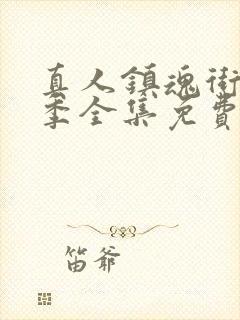 真人鎮魂街
季全集免費
笛爷